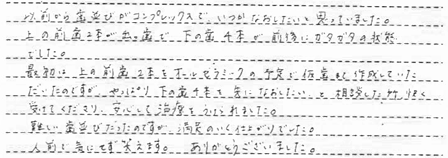 以前から歯並びがコンプレックスで、いつかなおしたいと思っていました。
上の前歯2本が出っ歯で、下の歯4本が前後にガタガタの状態
でした。
最初に上の前歯2本をオールセラミックの予定で仮歯まで作成していた
だいたのですが、やっぱり下の歯4本も気になおしたい、と相談した所、快く
受けてくださり、安心して治療をうけられました。
難しい歯並びだったのですが、満足のいく仕上がりでした。
人前で気にせず笑えます。ありがとうございました。